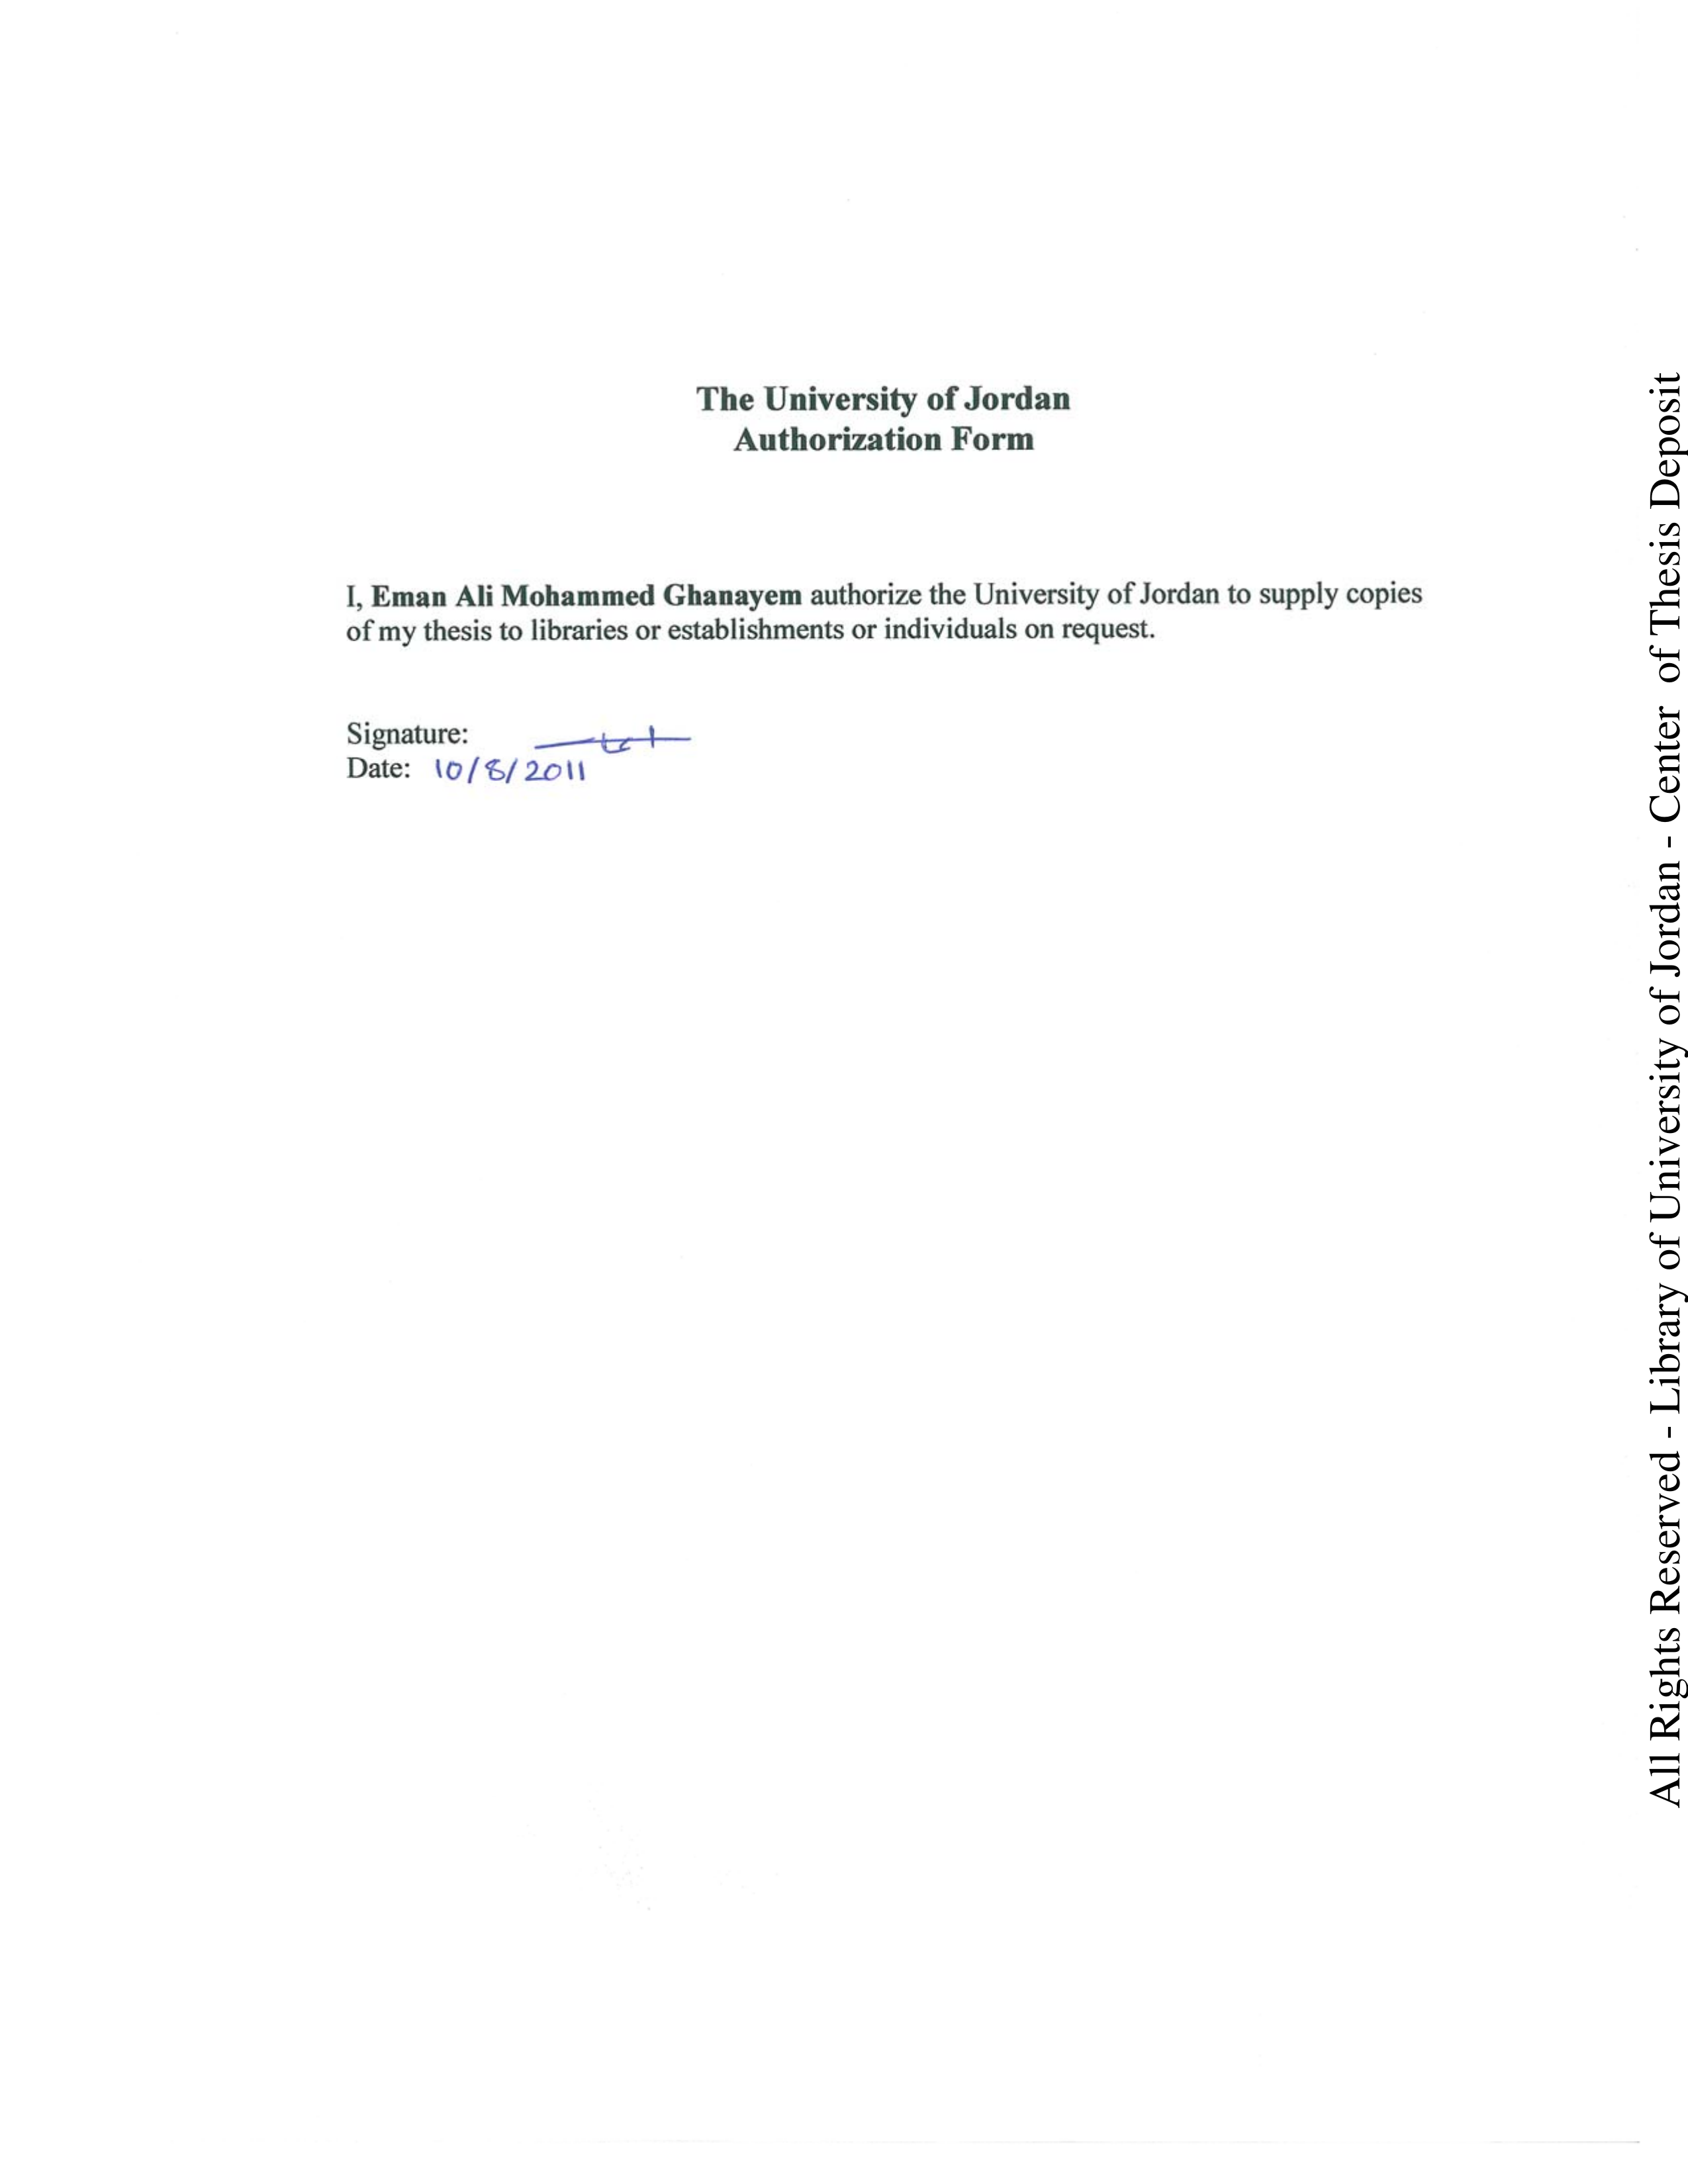 The University of Jordan
Authorization Form
I, Eman Ali Mohammed Ghanayem authorize the University of Jordan to supply copies
of my thesis to libraries or establishments or individuals on request.
Signature:
Date: 10/8/2011
All Rights Reserved - Library of University of Jordan - Center of Thesis Deposit